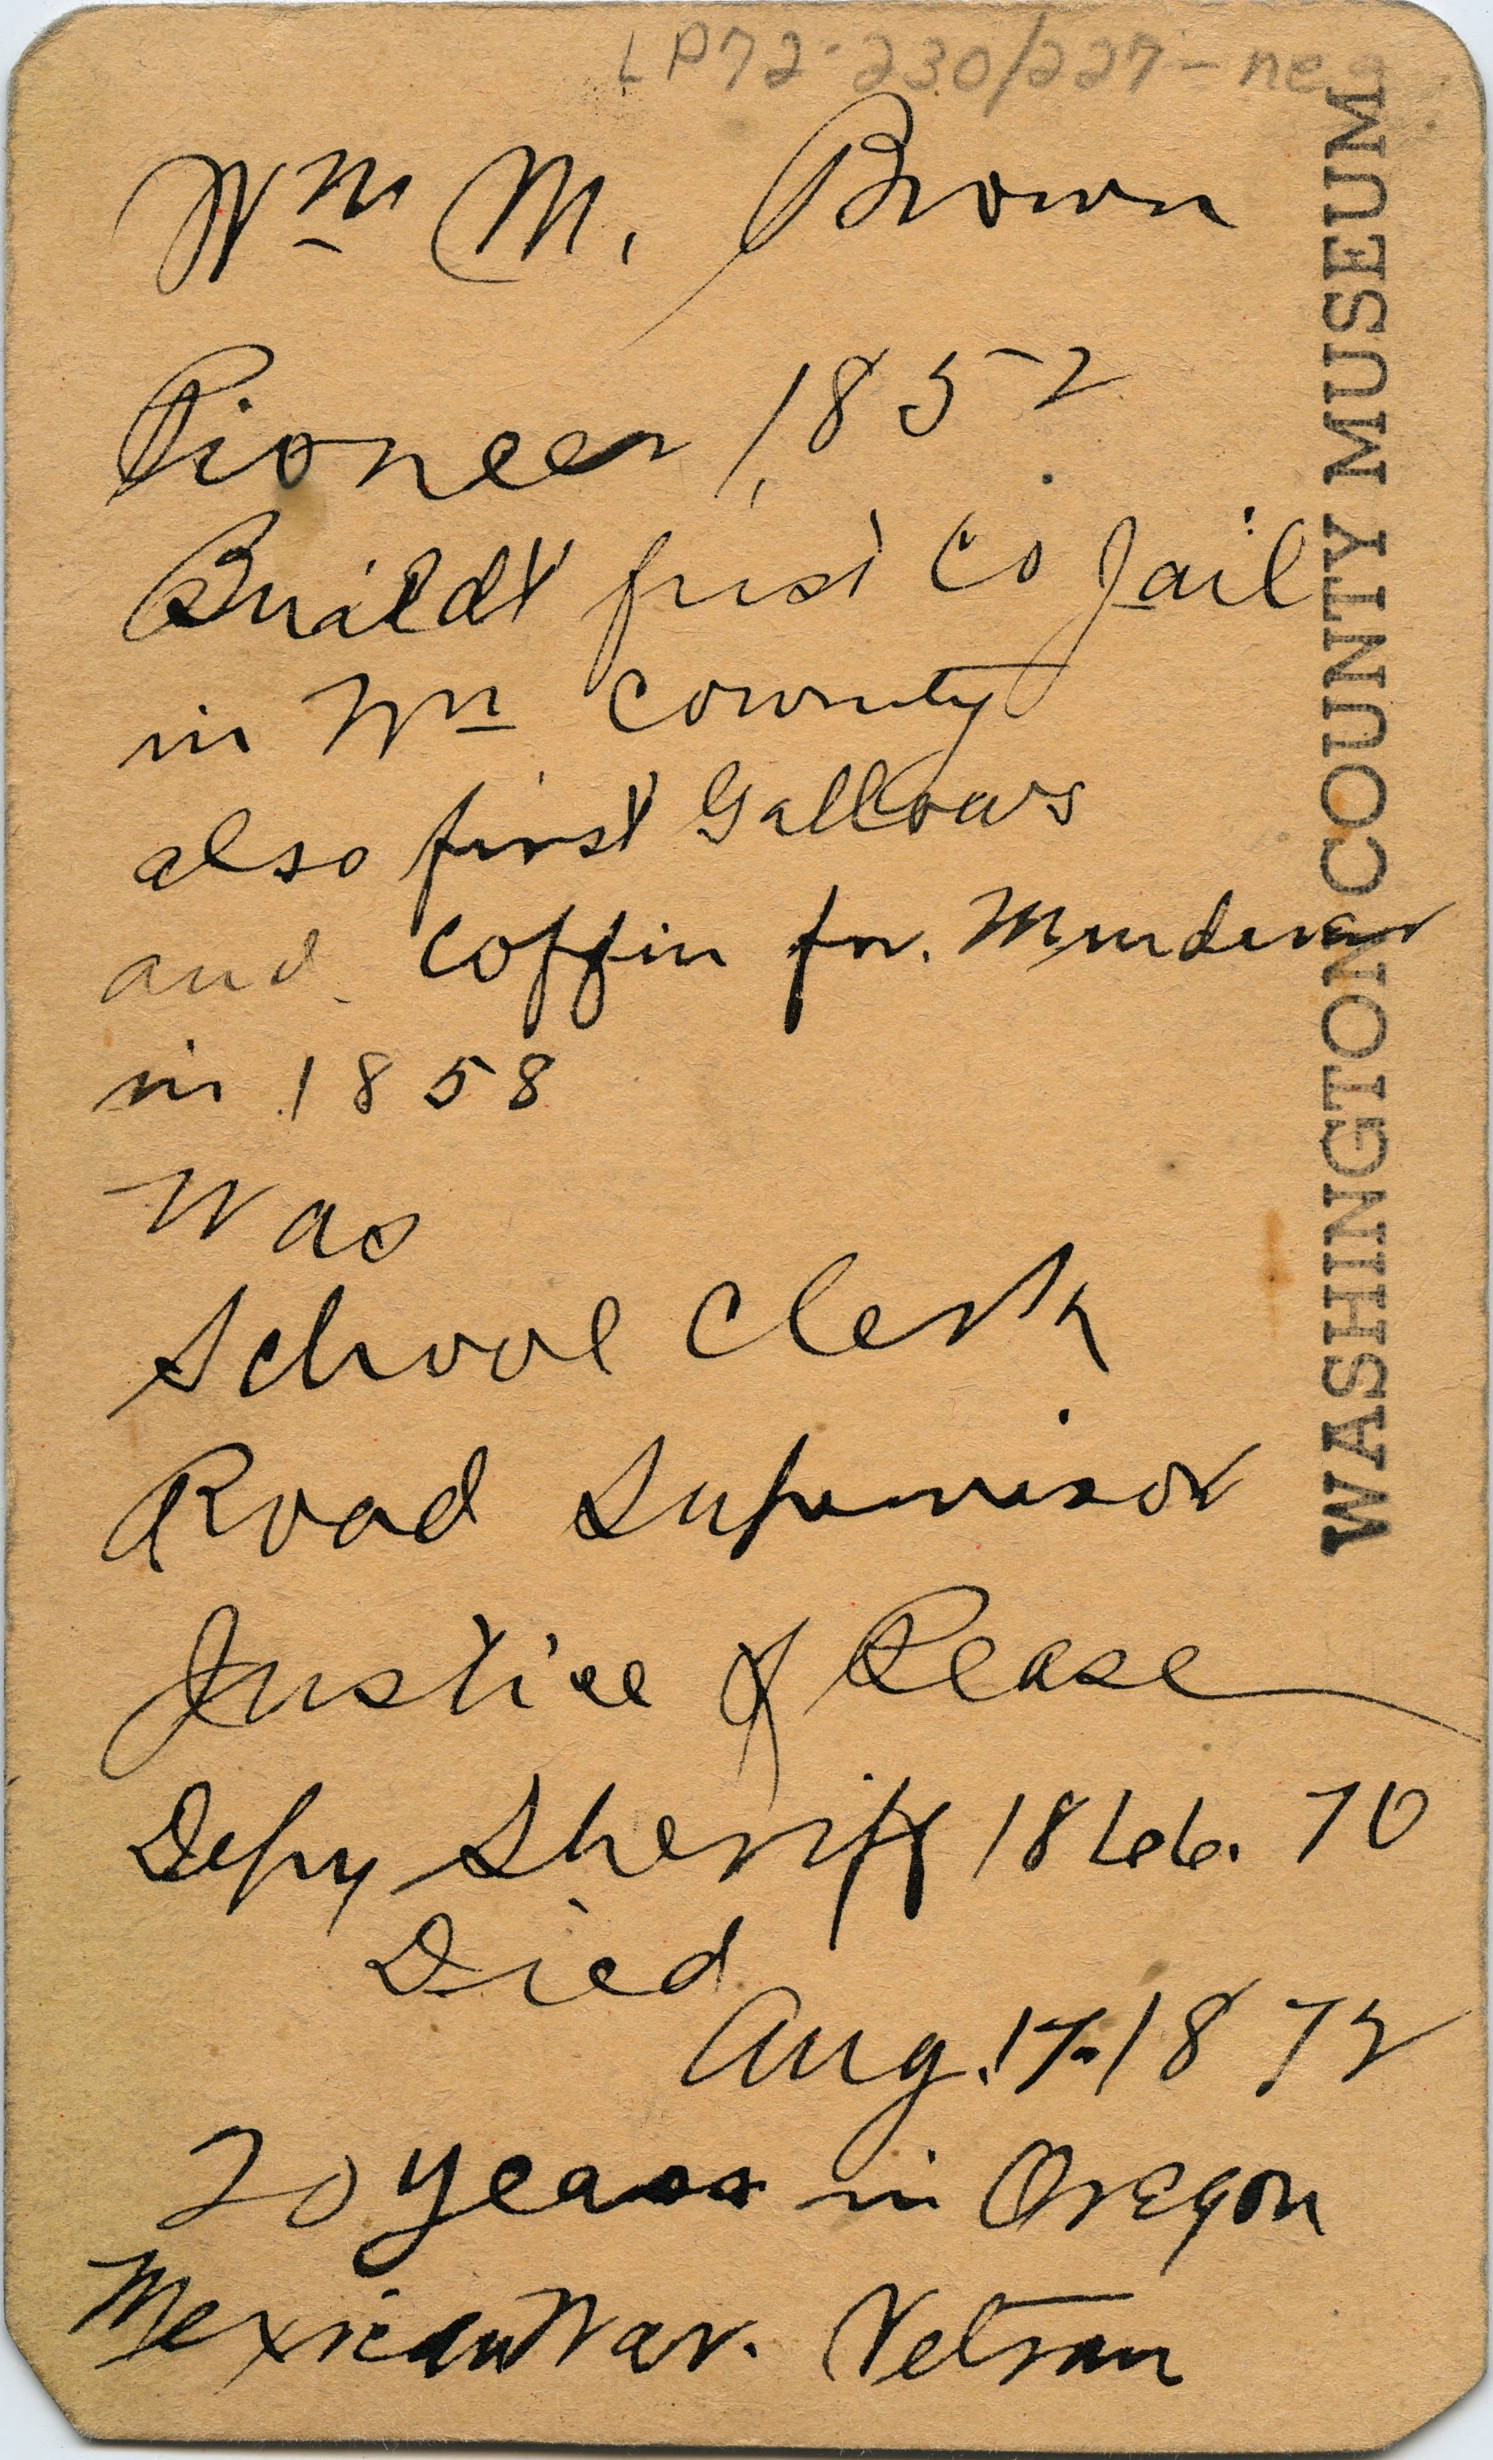 LP72-230/227-neg
Wm M. Brown
Pioneer, 1852.
Buildt first Co Jail
in Wn County
also first Gallows
and coffin for. Murderer
in 1858
Was
School Clerk
Road Supervisor
Justice of Pease
Depy Sheriff 1866. 70
Died
Aug. 17-1872
20 years in Oregon
Mexican War. Vetran
WASHINGTON COUNTY MUSEUM